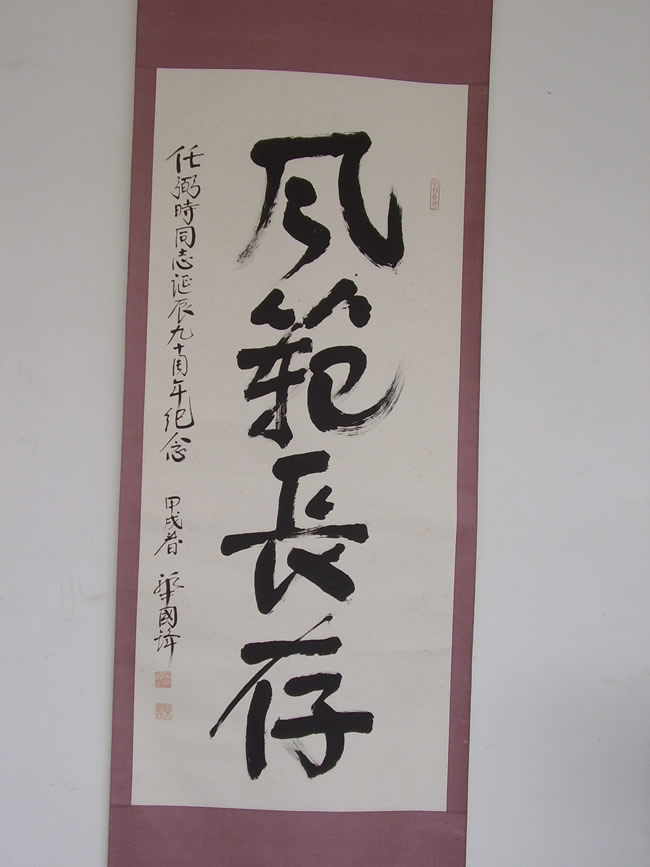 风範長存
任弼時同志诞辰九十周年纪念
甲戌春 華國鋒